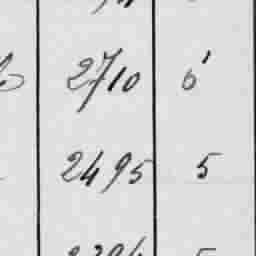 2710 6
2495 5